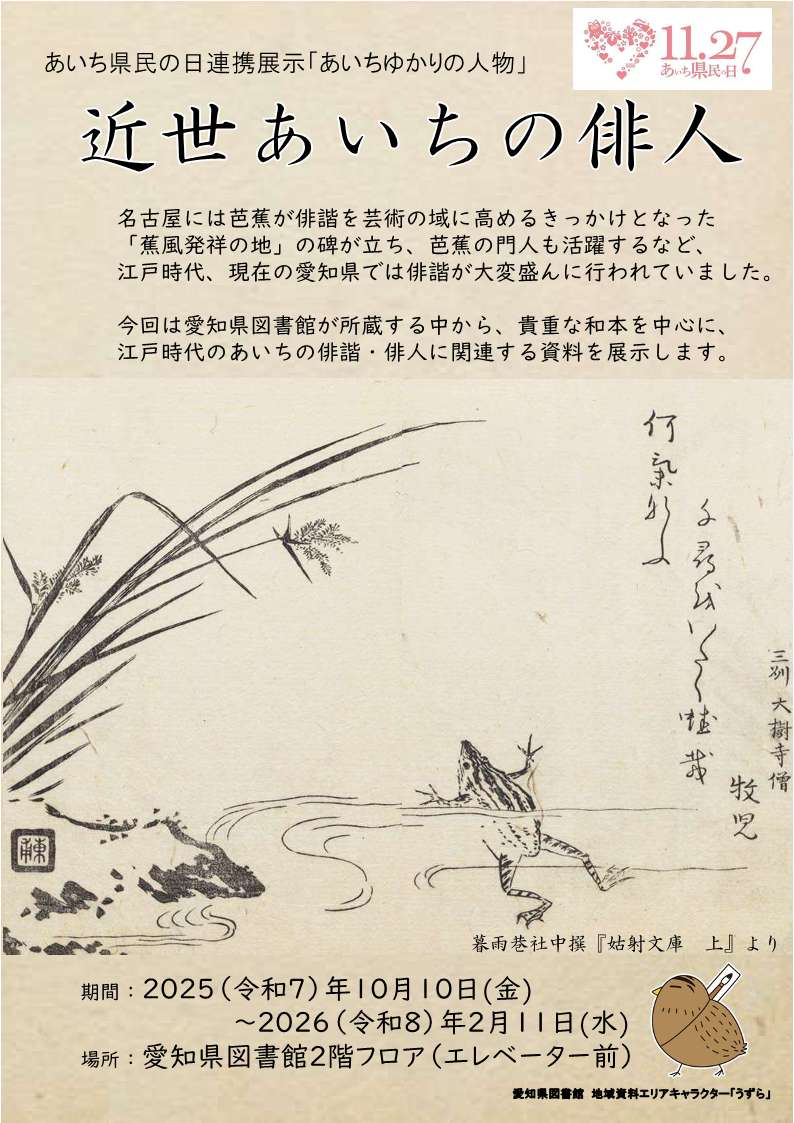 あいち県民の日連携展示「あいちゆかりの人物」
11.27
あいち県民の日
近世あいちの俳人
名古屋には芭蕉が俳諧を芸術の域に高めるきっかけとなった
「蕉風発祥の地」の碑が立ち、芭蕉の門人も活躍するなど、
江戸時代、現在の愛知県では俳諧が大変盛んに行われていました。
今回は愛知県図書館が所蔵する中から、貴重な和本を中心に、
江戸時代のあいちの俳諧・俳人に関連する資料を展示します。
三州 大樹寺僧
牧児
何氣なふ
暮雨巷社中撰『姑射文庫 上』より
期間：2025（令和7）年10月10日(金)
～2026（令和8）年2月11日(水)
場所：愛知県図書館2階フロア（エレベーター前）
愛知県図書館 地域資料エリアキャラクター「うずら」